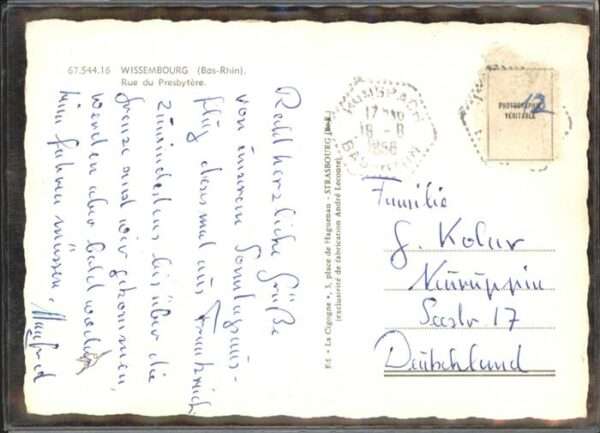 67.544.16 WISSEMBOURG (Bas-Rhin).
Rue du Presbytère.
Recht herzliche Grüße
von unserem Sonntagsaus-
flug, diesmal aus Frankreich
zumindestens bis über die
Grenze sind wir gekommen,
werden aber bald wieder
heim fahren müssen. Manfred
Ed. « La Cigogne », 3, place de Haguenau - STRASBOURG
(exclusivité de fabrication André Leconte)
HUNSPACH
17
18 - 8
1968
BAS-RHIN
PHOTOGRAPHIE
VÉRITABLE
12
Familie
G. Kolar
Neuruppin
Seestr. 17
Deutschland